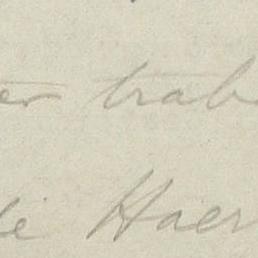 er trab
ie Haer